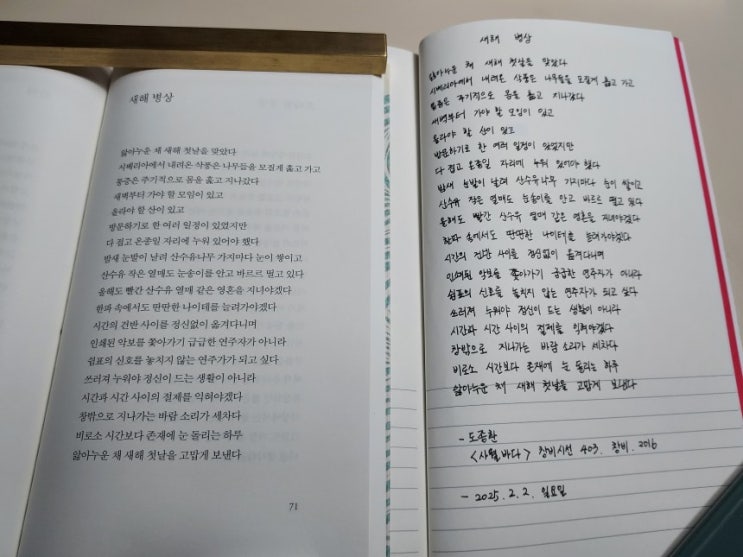 새해 병상
앓아누운 채 새해 첫날을 맞았다
시베리아에서 내려온 삭풍은 나무들을 모질게 훑고 가고
통증은 주기적으로 몸을 훑고 지나갔다
새벽부터 가야 할 모임이 있고
올라야 할 산이 있고
방문하기로 한 여러 일정이 있었지만
다 접고 온종일 자리에 누워 있어야 했다
밤새 눈발이 날려 산수유나무 가지마다 눈이 쌓이고
산수유 작은 열매도 눈송이를 안고 바르르 떨고 있다
올해도 빨간 산수유 열매 같은 영혼을 지녀야겠다
한파 속에서도 딴딴한 나이테를 늘려가야겠다
시간의 건반 사이를 정신없이 옮겨다니며
인쇄된 악보를 쫓아가기 급급한 연주자가 아니라
쉼표의 신호를 놓치지 않는 연주가가 되고 싶다
쓰러져 누워야 정신이 드는 생활이 아니라
시간과 시간 사이의 절제를 익혀야겠다
창밖으로 지나가는 바람 소리가 세차다
비로소 시간보다 존재에 눈 돌리는 하루
앓아누운 채 새해 첫날을 고맙게 보낸다
71
새해 병상
앓아누운 채 새해 첫날을 맞았다
시베리아에서 내려온 삭풍은 나무들을 모질게 훑고 가고
통증은 주기적으로 몸을 훑고 지나갔다
새벽부터 가야 할 모임이 있고
올라야 할 산이 있고
방문하기로 한 여러 일정이 있었지만
다 접고 온종일 자리에 누워 있어야 했다
밤새 눈발이 날려 산수유나무 가지마다 눈이 쌓이고
산수유 작은 열매도 눈송이를 안고 바르르 떨고 있다
올해도 빨간 산수유 열매 같은 영혼을 지녀야겠다
한파 속에서도 딴딴한 나이테를 늘려가야겠다
시간의 건반 사이를 정신없이 옮겨다니며
인쇄된 악보를 쫓아가기 급급한 연주자가 아니라
쉼표의 신호를 놓치지 않는 연주자가 되고 싶다
쓰러져 누워야 정신이 드는 생활이 아니라
시간과 시간 사이의 절제를 익혀야겠다
창밖으로 지나가는 바람 소리가 세차다
비로소 시간보다 존재에 눈 돌리는 하루
앓아누운 채 새해 첫날을 고맙게 보낸다
- 도종환
<사월 바다> 창비시선 403. 창비. 2016
- 2025. 2. 2. 일요일